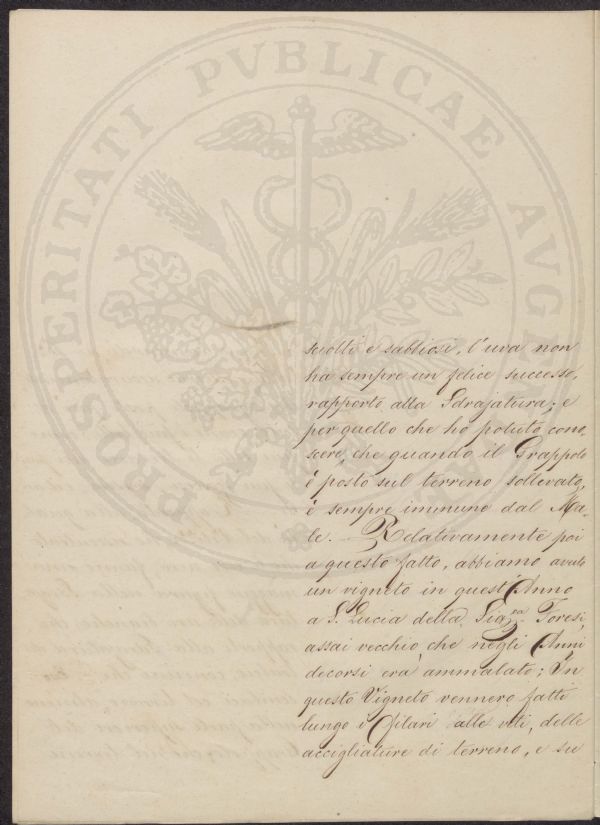 PROSPERITATI PVBLICAE AVG
sciolti e sabbiosi, l'uva non
ha sempre un felice successo,
rapporto alla Sdrajatura; e
per quello che ho potuto cono-
scere, che quando il Grappolo
è posto sul terreno sollevato,
è sempre immune dal Ma-
le. — Relativamente poi
a questo fatto, abbiamo avuto
un vigneto in quest'Anno
a S. Lucia della Sig.ra Toresi,
assai vecchio, che negli Anni
decorsi era ammalato; In
questo Vigneto vennero fatti
lungo i Filari alle viti, delle
accigliature di terreno, e su